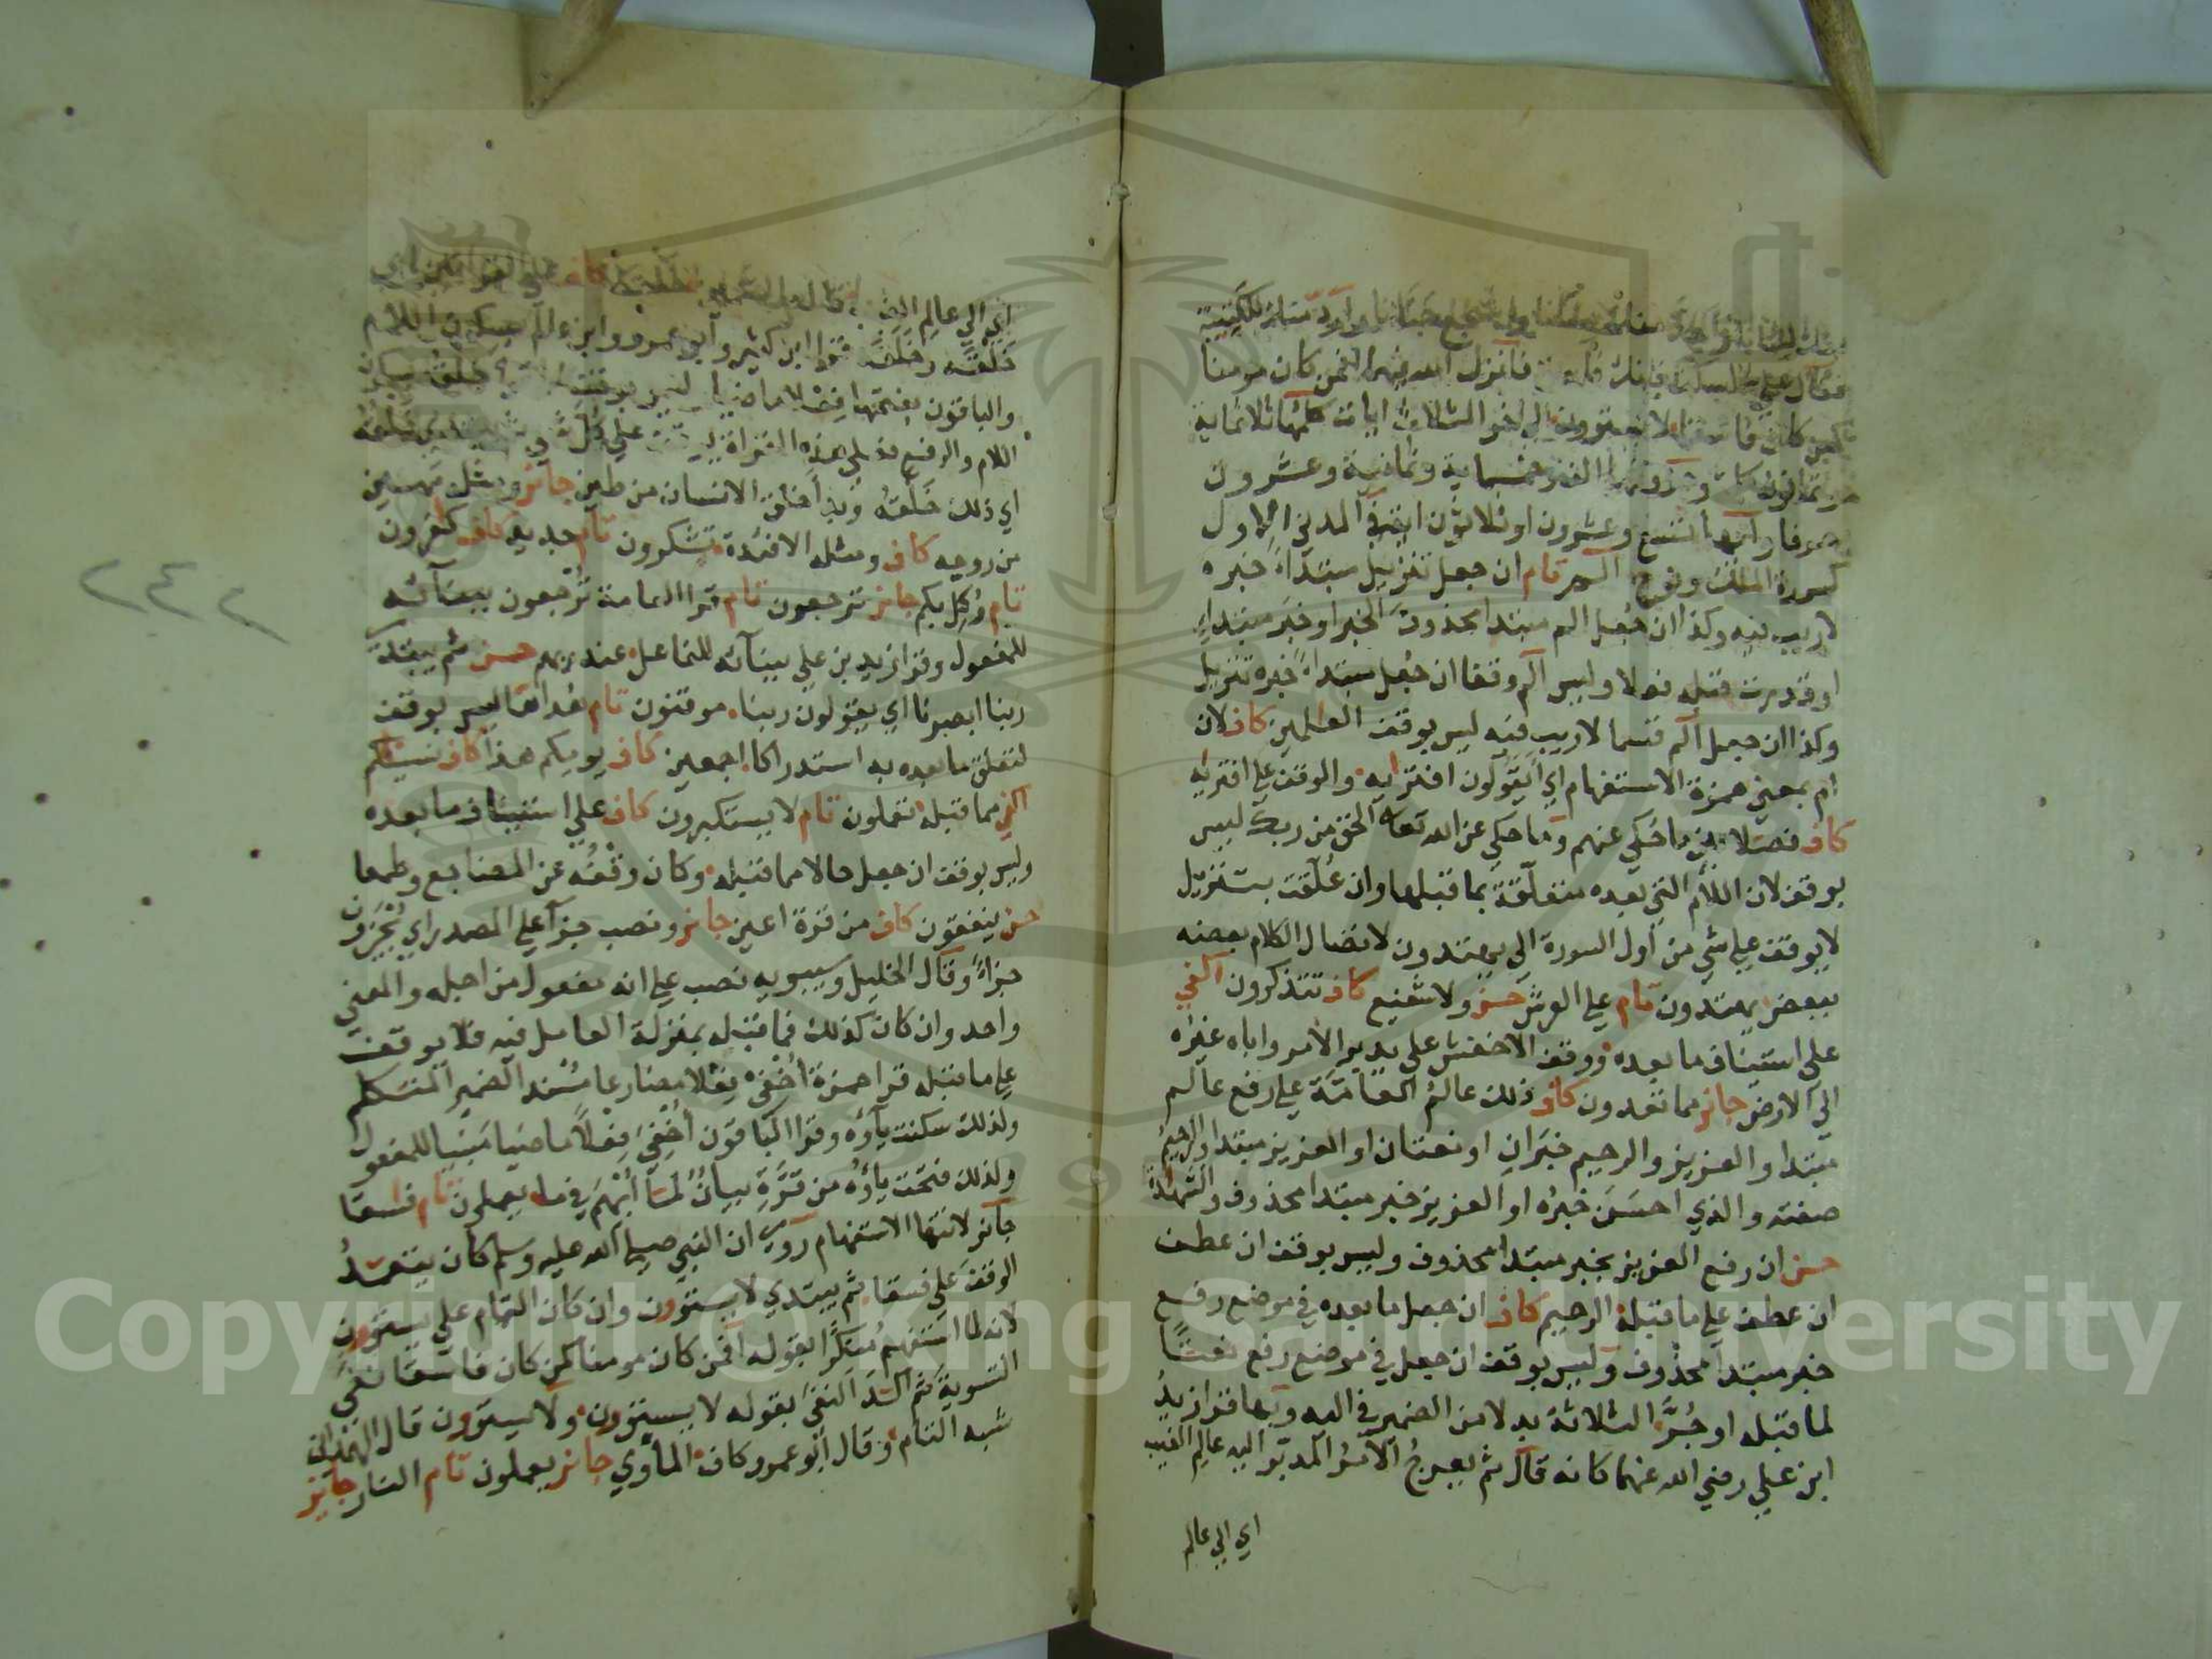 فقال علي اسكت فانك فاسق فانزل الله فيهما افمن كان مومنا
كمن كان فاسقا لا يستوون الى اخر الثلاث ايات كلمها ثلاثماية
وثمانون كلمة وحروفها الف وخمسماية وثمانية وعشرون
حرفا وآيها تسع وعشرون او ثلاثون اية في المدني الاول
كسورة الملك ونوح الم تام ان جعل تنزيل مبتداء خبره
لاريب فيه وكذا ان جُعل الم مبتدا محذوف الخبر او خبَر مبتداءٍ
او قدرت قبله فعلا وليس الم وقفا ان جُعل مبتداءً خبره تنزيل
وكذا ان جعل الم قسما لاريب فيه ليس بوقف العلمين كاف لان
ام بمعنى همزة الاستفهام اي ايَقولون افتريه والوقف على افتريه
كاف فصلا بين ما حُكي عنهم وما حكي عن الله تعالى الحق من ربك ليس
بوقف لان اللام التي بعده متعلّقة بما قبلها وان عُلّقت بتنزيل
لا يوقف على شي من اول السورة الى يهتدون لاتصال الكلام بعضه
ببعض يهتدون تام على العرش حسن ولا شفيع كاف تتذكرون اكفي
على استيناف ما بعده ووقف الاخفش على يدبر الامر واباه غيره
الى الارض جائز مما تعدون كاف ذلك عالمُ العامّة على رفع عالم
مبتدا والعزيز والرحيم خبرانِ او نعتان او العزيز مبتدا والرحيمُ
صفته والذي احسَنَ خبرُه او العزيز خبر مبتدا محذوف والشهادة
حسن ان رفع العزيز بخبر مبتدا محذوف وليس بوقف ان عطف
ان عطف على ما قبله الرحيم كاف ان جعل ما بعده في موضع رفع
خبر مبتدا محذوف وليس بوقف ان جعل في موضع رفع نعتًا
لما قبله او جُرَّ الثلاثة بدلا من الضمير في اليه وبها قرا زيدُ
ابن علي رضي الله عنهما كانه قال ثم يعرجُ الامرُ المدبّر اليه عالِم الغيب
اي الى عالم
اي الى عالم الغيب
خَلْقَه وخَلَقَه فقرا ابن كثير وابو عمرو وابن عامر بسكون اللام
والباقون بفتحها فِعْلا ماضيا ليس بوقف
اللام والرفع فعلى هذه القراة يوقف على كل شي
اي ذلك خَلْقُه وبدا خلق الانسان من طين جائز ومثله مهين
من روحه كاف ومثله الافئدة تشكرون تام جديد كاف كفرون
تام وُكِل بكم جائز ترجعون تام قرا العامة تُرجعون ببنآئه
للمفعول وقرا زيد بن علي ببنآئه للفاعل عند ربهم حسن ثم يبتدئ
ربنا ابصرنا اي يقولون ربنا موقنون تام هداها ليس بوقف
لتعلق ما بعده به استدراكا اجمعين كاف يومكم هذا كاف نسيناكم
اكفي مما قبله تعملون تام لا يستكبرون كاف على استيناف ما بعده
وليس بوقف ان جعل حالا مما قبله وكان وقفُه عن المضاجع وطمعا
حسن ينفقون كاف من قرة اعين جائز ونصب جزآ على المصدر اي يُجزون
جزاءً وقال الخليل وسيبويه نصب على انه مفعول من اجله والمعنى
واحد وان كان كذلك فما قبله بمنزلة العامل فيه فلا يوقف
على ما قبله قرا حمزة اُخفي فعلا مضارعا مُسْند الضمير المتكلم
ولذلك سكنت يآؤه وقرا الباقون أُخفِيَ فِعْلاً ماضيا مبنيا للمفعول
ولذلك فتحت يآؤُه من قرَّةِ بيانٌ لما اُبْهِمَ في ما يعملون تام فاسقا
جآئز لانتها الاستفهام روي ان النبي صلى الله عليه وسلم كان يتعمدُ
الوقفَ على فسقا ثم يبتدي لا يستوون وان كان التمام على يستوون
لانه لما استفهم مُنكرًا بقوله افمن كان مومنا كمن كان فاسقا نفى
التسوية ثم اكّد النفيَ بقوله لا يستوون ولا يستوون قال الهمذاني
شبه التام وقال ابو عمرو كاف الماوي جائز يعملون تام النار جائز
٢٤٢
Copyright © King Saud University